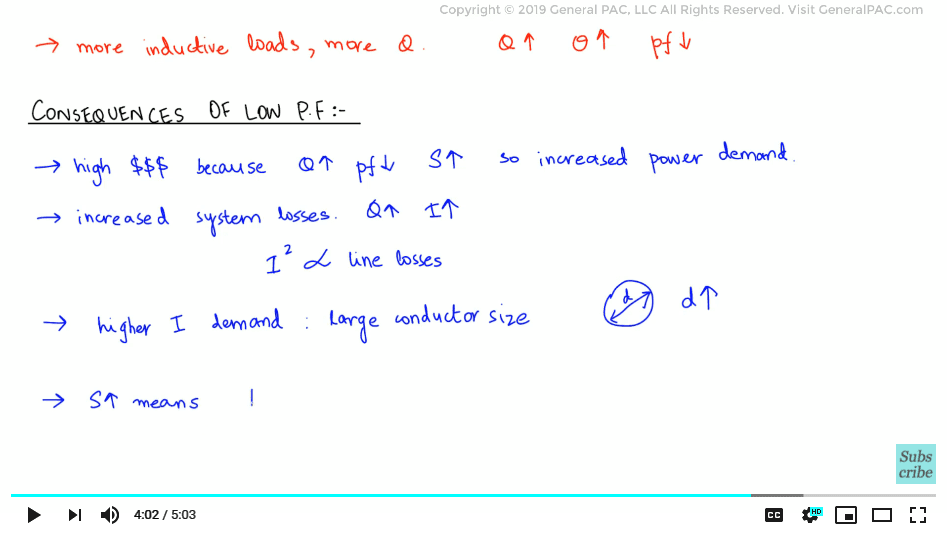 Copyright © 2019 General PAC, LLC All Rights Reserved. Visit GeneralPAC.com
→ more inductive loads, more Q. Q↑ θ↑ pf↓
CONSEQUENCES OF LOW P.F:-
→ high $$$ because Q↑ pf↓ S↑ so increased power demand.
→ increased system losses. Q↑ I↑
I² ∝ line losses
→ higher I demand : Large conductor size d d↑
→ S↑ means
Subs
cribe
4:02 / 5:03 CC HD